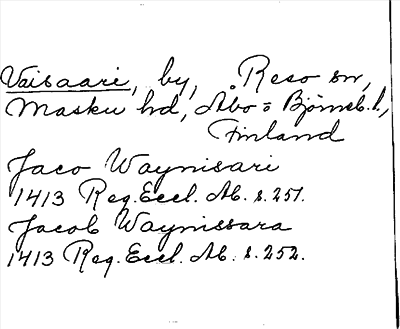 Vaisaari, by, Reso sn,
Masku hd, Åbo = Björneb. l.,
Finland
Jaco Waynisari
1413 Reg. Eccl. Ab. s. 251.
Jacob Waynissara
1413 Reg. Eccl. Ab. s. 252.